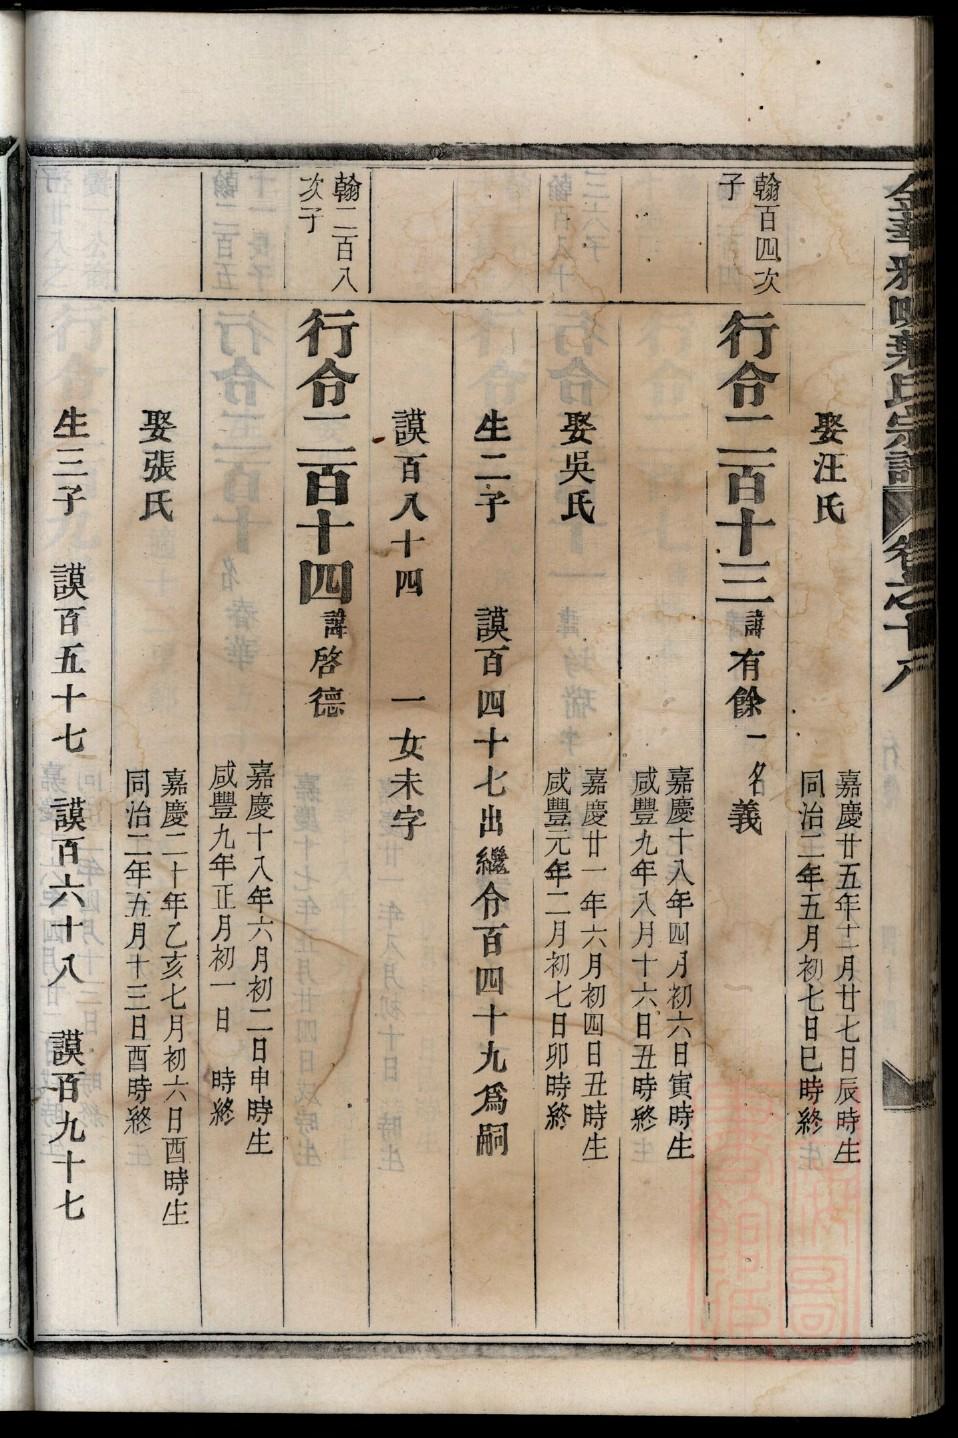 金華雅畈葉氏宗譜 卷之十八
娶汪氏
嘉慶廿五年十二月廿七日辰時生
同治二年五月初七日巳時終
翰百四次
子
行令二百十三 諱有餘一名義
嘉慶十八年四月初六日寅時生
咸豐九年八月十六日丑時終
娶吳氏
嘉慶廿一年六月初四日丑時生
咸豐元年二月初七日卯時終
生二子 謨百四十七出繼令百四十九為嗣
謨百八十四 一女未字
翰二百八
次子
行令二百十四 諱啓德
嘉慶十八年六月初二日申時生
咸豐九年正月初一日 時終
娶張氏
嘉慶二十年乙亥七月初六日酉時生
同治二年五月十三日酉時終
生三子 謨百五十七 謨百六十八 謨百九十七